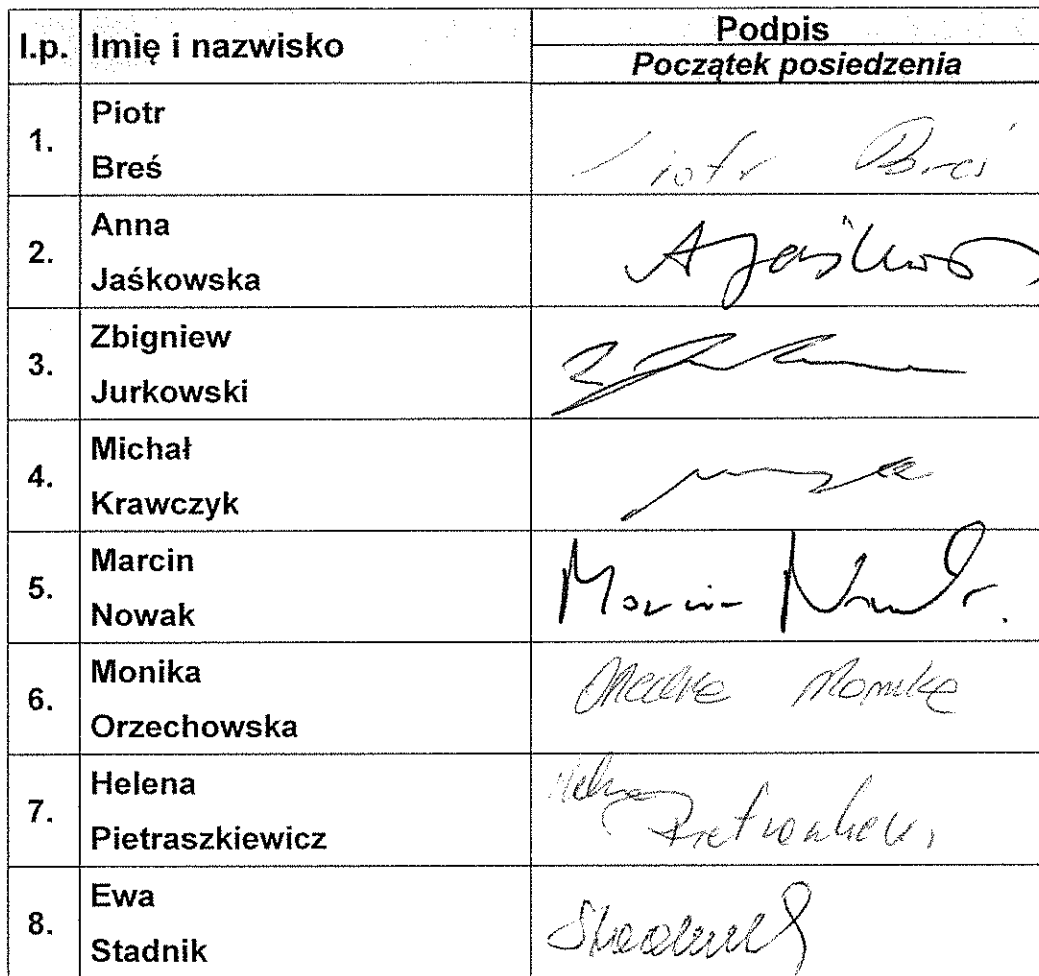 l.p. Imię i nazwisko Podpis
Początek posiedzenia
1. Piotr
Breś
Piotr Breś
2. Anna
Jaśkowska
A Jaśkows
3. Zbigniew
Jurkowski
4. Michał
Krawczyk
5. Marcin
Nowak
Marcin Nowak
6. Monika
Orzechowska
Monika
7. Helena
Pietraszkiewicz
Helena
8. Ewa
Stadnik